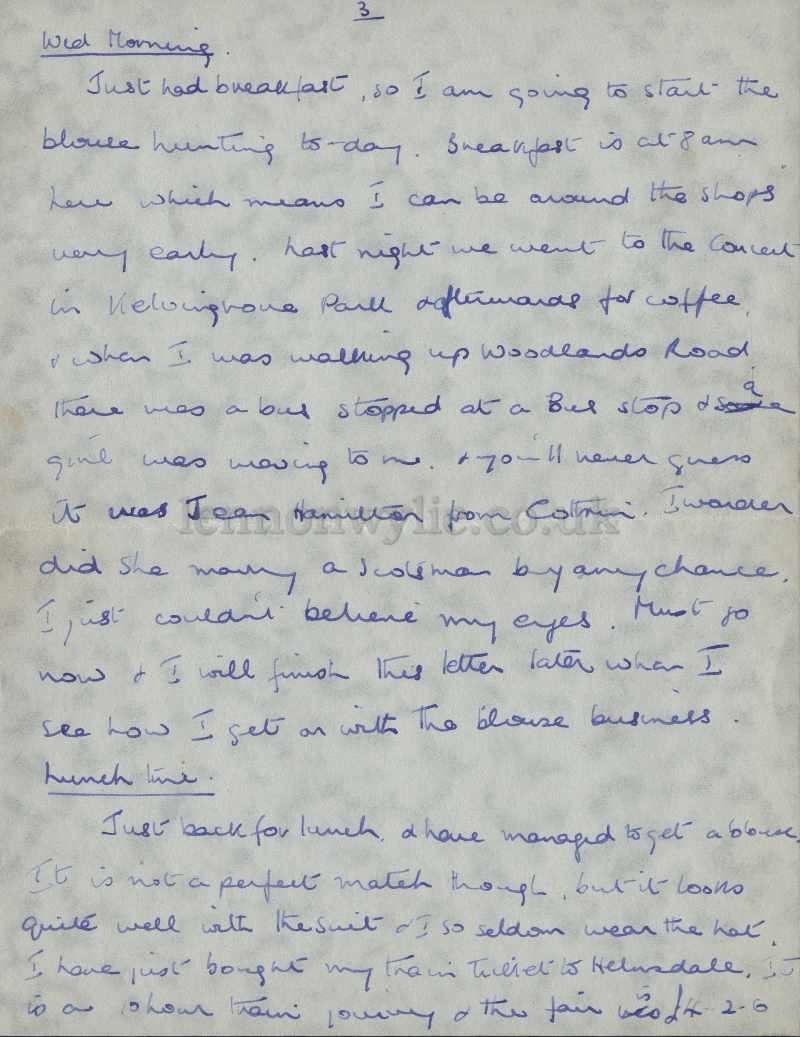 3
Wed Morning.
Just had breakfast, so I am going to start the
blouse hunting to-day. Breakfast is at 8 am
here which means I can be around the shops
very early. Last night we went to the Concert
in Kelvingrove Park & afterwards for coffee,
& when I was walking up Woodlands Road
there was a bus stopped at a Bus stop & a
girl was waving to me. & you'll never guess
it was Jean Hamilton from Coltrim. I wonder
did she marry a Scotsman by any chance.
I just couldn't believe my eyes. Must go
now & I will finish this letter later when I
see how I get on with the blouse business.
Lunch time.
Just back for lunch, & have managed to get a blouse.
It is not a perfect match though, but it looks
quite well with the suit & I so seldom wear the hat.
I have just bought my train ticket to Helmsdale. It
is a hour train journey & the fair is £4-2-0
lennonwylie.co.uk